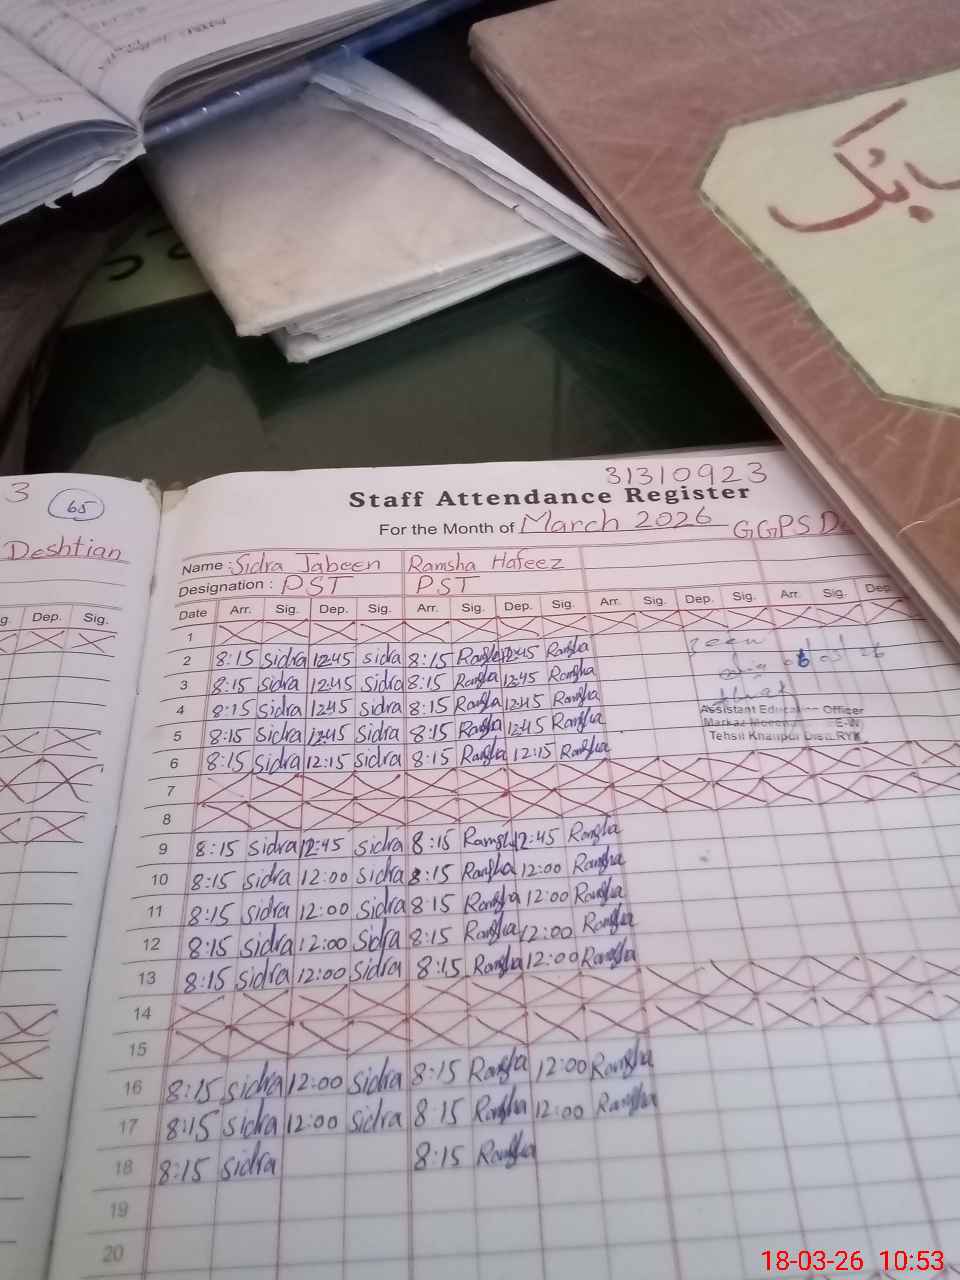 بک
3
65
Deshtian
g. Dep. Sig.
31310923
Staff Attendance Register
For the Month of March 2026 GGPS
Name : Sidra Jabeen Ramsha Hafeez
Designation : PST PST
Date Arr. Sig. Dep. Sig. Arr. Sig. Dep. Sig. Arr. Sig. Dep. Sig. Arr. Sig. Dep.
1
2 8:15 Sidra 12:45 Sidra 8:15 Ramsha 12:45 Ramsha
3 8:15 Sidra 12:45 Sidra 8:15 Ramsha 12:45 Ramsha
4 8:15 Sidra 12:45 Sidra 8:15 Ramsha 12:45 Ramsha
5 8:15 Sidra 12:45 Sidra 8:15 Ramsha 12:45 Ramsha
6 8:15 Sidra 12:15 Sidra 8:15 Ramsha 12:15 Ramsha
Seen
Assistant Education Officer
Markaz E-W
Tehsil Khanpur Distt.RYK
7
8
9 8:15 Sidra 12:45 Sidra 8:15 Ramsha 12:45 Ramsha
10 8:15 Sidra 12:00 Sidra 8:15 Ramsha 12:00 Ramsha
11 8:15 Sidra 12:00 Sidra 8:15 Ramsha 12:00 Ramsha
12 8:15 Sidra 12:00 Sidra 8:15 Ramsha 12:00 Ramsha
13 8:15 Sidra 12:00 Sidra 8:15 Ramsha 12:00 Ramsha
14
15
16 8:15 Sidra 12:00 Sidra 8:15 Ramsha 12:00 Ramsha
17 8:15 Sidra 12:00 Sidra 8:15 Ramsha 12:00 Ramsha
18 8:15 Sidra 8:15 Ramsha
19
20
18-03-26 10:53